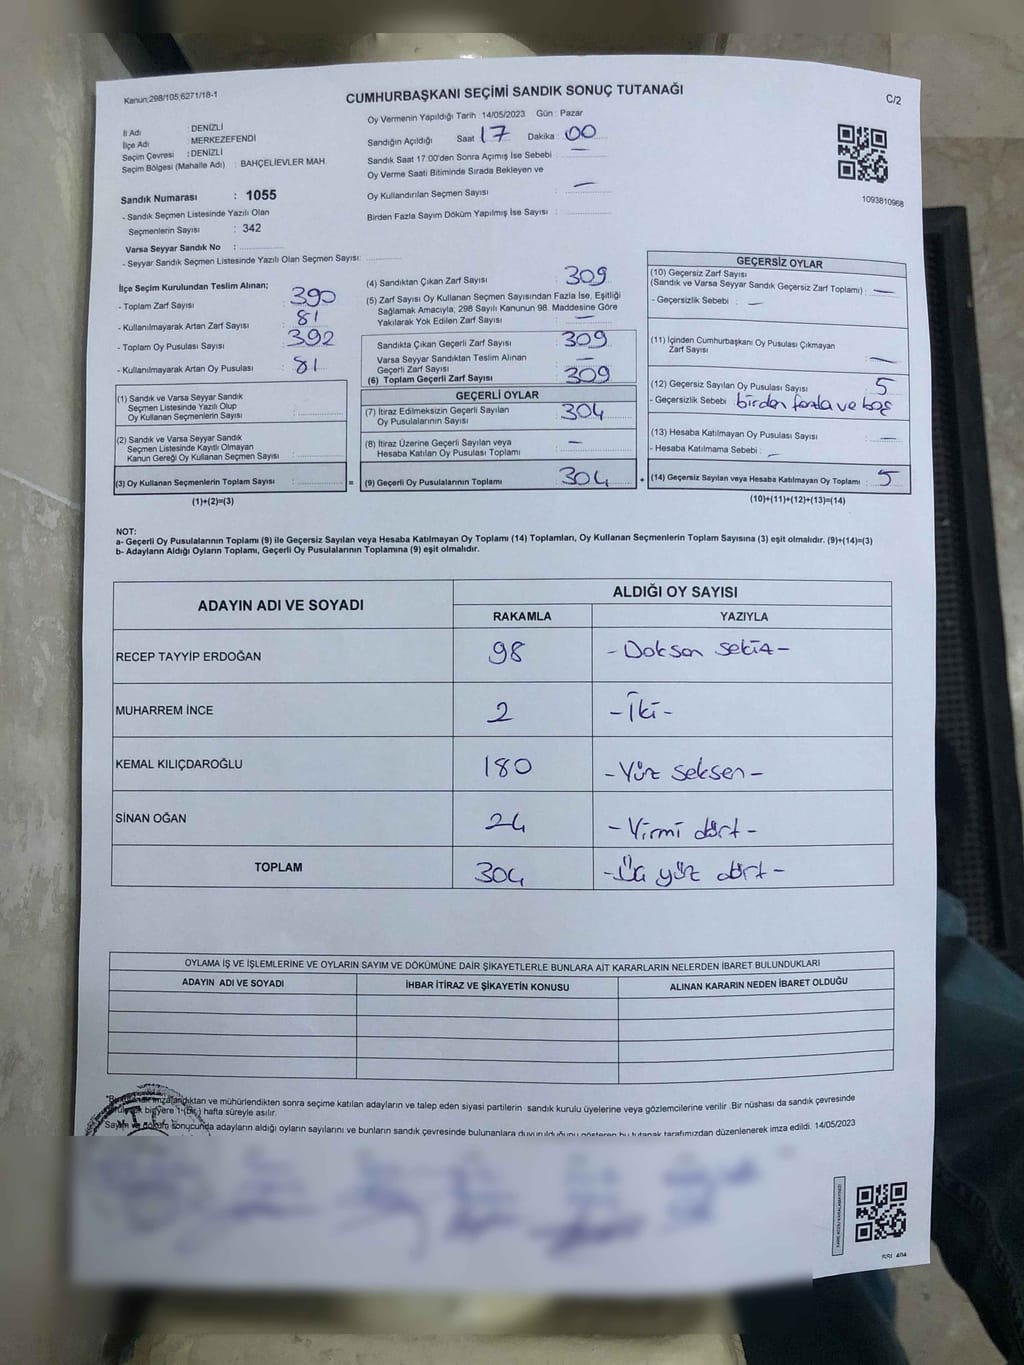 Kanun;298/105;6271/18-1
CUMHURBAŞKANI SEÇİMİ SANDIK SONUÇ TUTANAĞI
C/2
İl Adı : DENİZLİ
İlçe Adı : MERKEZEFENDİ
Seçim Çevresi : DENİZLİ
Seçim Bölgesi (Mahalle Adı) : BAHÇELİEVLER MAH.
Oy Vermenin Yapıldığı Tarih :14/05/2023 Gün : Pazar
Sandığın Açıldığı Saat 17 Dakika : 00
Sandık Saat 17:00'den Sonra Açımış İse Sebebi : —
Oy Verme Saati Bitiminde Sırada Bekleyen ve
Oy Kullandırılan Seçmen Sayısı : —
Birden Fazla Sayım Döküm Yapılmış İse Sayısı :
1093810968
Sandık Numarası : 1055
- Sandık Seçmen Listesinde Yazılı Olan
Seçmenlerin Sayısı : 342
Varsa Seyyar Sandık No :
- Seyyar Sandık Seçmen Listesinde Yazılı Olan Seçmen Sayısı:
İlçe Seçim Kurulundan Teslim Alınan;
- Toplam Zarf Sayısı : 390
- Kullanılmayarak Artan Zarf Sayısı : 81
- Toplam Oy Pusulası Sayısı : 392
- Kullanılmayarak Artan Oy Pusulası : 81
(1) Sandık ve Varsa Seyyar Sandık
Seçmen Listesinde Yazılı Olup
Oy Kullanan Seçmenlerin Sayısı :
(2) Sandık ve Varsa Seyyar Sandık
Seçmen Listesinde Kayıtlı Olmayan
Kanun Gereği Oy Kullanan Seçmen Sayısı :
(3) Oy Kullanan Seçmenlerin Toplam Sayısı : =
(1)+(2)=(3)
(4) Sandıktan Çıkan Zarf Sayısı : 309
(5) Zarf Sayısı Oy Kullanan Seçmen Sayısından Fazla İse, Eşitliği
Sağlamak Amacıyla, 298 Sayılı Kanunun 98. Maddesine Göre
Yakılarak Yok Edilen Zarf Sayısı : —
Sandıkta Çıkan Geçerli Zarf Sayısı : 309
Varsa Seyyar Sandıktan Teslim Alınan
Geçerli Zarf Sayısı : —
(6) Toplam Geçerli Zarf Sayısı : 309
GEÇERLİ OYLAR
(7) İtiraz Edilmeksizin Geçerli Sayılan
Oy Pusulalarının Sayısı : 304
(8) İtiraz Üzerine Geçerli Sayılan veya
Hesaba Katılan Oy Pusulası Toplamı : —
(9) Geçerli Oy Pusulalarının Toplamı : 304 +
GEÇERSİZ OYLAR
(10) Geçersiz Zarf Sayısı
(Sandık ve Varsa Seyyar Sandık Geçersiz Zarf Toplamı) : —
- Geçersizlik Sebebi : —
(11) İçinden Cumhurbaşkanı Oy Pusulası Çıkmayan
Zarf Sayısı : —
(12) Geçersiz Sayılan Oy Pusulası Sayısı : 5
- Geçersizlik Sebebi birden fazla ve boş
(13) Hesaba Katılmayan Oy Pusulası Sayısı : —
- Hesaba Katılmama Sebebi : —
(14) Geçersiz Sayılan veya Hesaba Katılmayan Oy Toplamı : 5
(10)+(11)+(12)+(13)=(14)
NOT:
a- Geçerli Oy Pusulalarının Toplamı (9) ile Geçersiz Sayılan veya Hesaba Katılmayan Oy Toplamı (14) Toplamları, Oy Kullanan Seçmenlerin Toplam Sayısına (3) eşit olmalıdır. (9)+(14)=(3)
b- Adayların Aldığı Oyların Toplamı, Geçerli Oy Pusulalarının Toplamına (9) eşit olmalıdır.
ADAYIN ADI VE SOYADI
ALDIĞI OY SAYISI
RAKAMLA YAZIYLA
RECEP TAYYİP ERDOĞAN 98 - Doksan sekiz -
MUHARREM İNCE 2 - İki -
KEMAL KILIÇDAROĞLU 180 - Yüz seksen -
SİNAN OĞAN 24 - Yirmi dört -
TOPLAM 304 - Üç yüz dört -
OYLAMA İŞ VE İŞLEMLERİNE VE OYLARIN SAYIM VE DÖKÜMÜNE DAİR ŞİKAYETLERLE BUNLARA AİT KARARLARIN NELERDEN İBARET BULUNDUKLARI
ADAYIN ADI VE SOYADI İHBAR İTİRAZ VE ŞİKAYETİN KONUSU ALINAN KARARIN NEDEN İBARET OLDUĞU
imzalandıktan ve mühürlendikten sonra seçime katılan adayların ve talep eden siyasi partilerin sandık kurulu üyelerine veya gözlemcilerine verilir .Bir nüshası da sandık çevresinde
bir yere 1 (bir) hafta süreyle asılır.
Sayım ve döküm sonucunda adayların aldığı oyların sayılarını ve bunların sandık çevresinde bulunanlara duyurulduğunu gösteren bu tutanak tarafımızdan düzenlenerek imza edildi. 14/05/2023